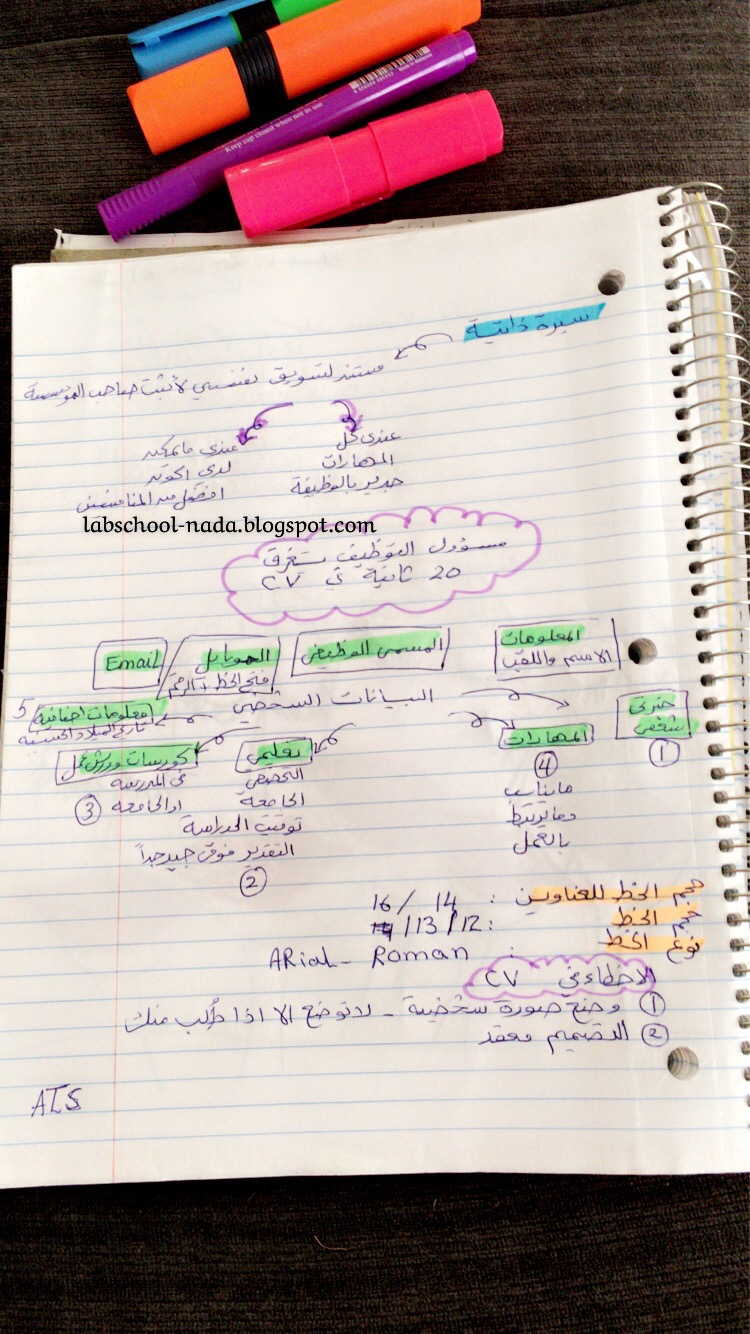 Keep cap closed when not in use
سيرة ذاتية
مستند لتسويق نفسي لأثبت صاحب المؤسسة
عندي كل
المهارات
جدير بالوظيفة
عندي ما يمكن
لدى اكون
افضل من المنافسين
labschool-nada.blogspot.com
مسؤول التوظيف يستغرق
20 ثانية في CV
المعلومات
الاسم واللقب
المسمى الوظيفي
الموبايل
فتح الخط + الرقم
Email
البيانات الشخصي
شخصي
1
المهارات
4
ما يناسب
وما يرتبط
بالعمل
تعليمي
التخصص
الجامعة
توقيت الدراسة
التقدير فوق جيد جداً
2
كورسات وورش عمل
في المدرسة
او الجامعه
3
5 معلومات اضافية
تاريخ الميلاد والجنسيه
حجم الخط للعناوين : 14 / 16
حجم الخط : 12 / 13 /
نوع الخط : ARial - Roman
الاخطاء في CV
1 وضع صورة شخصية - لا توضع الا اذا طُلب منك
2 التصميم معقد
ATS